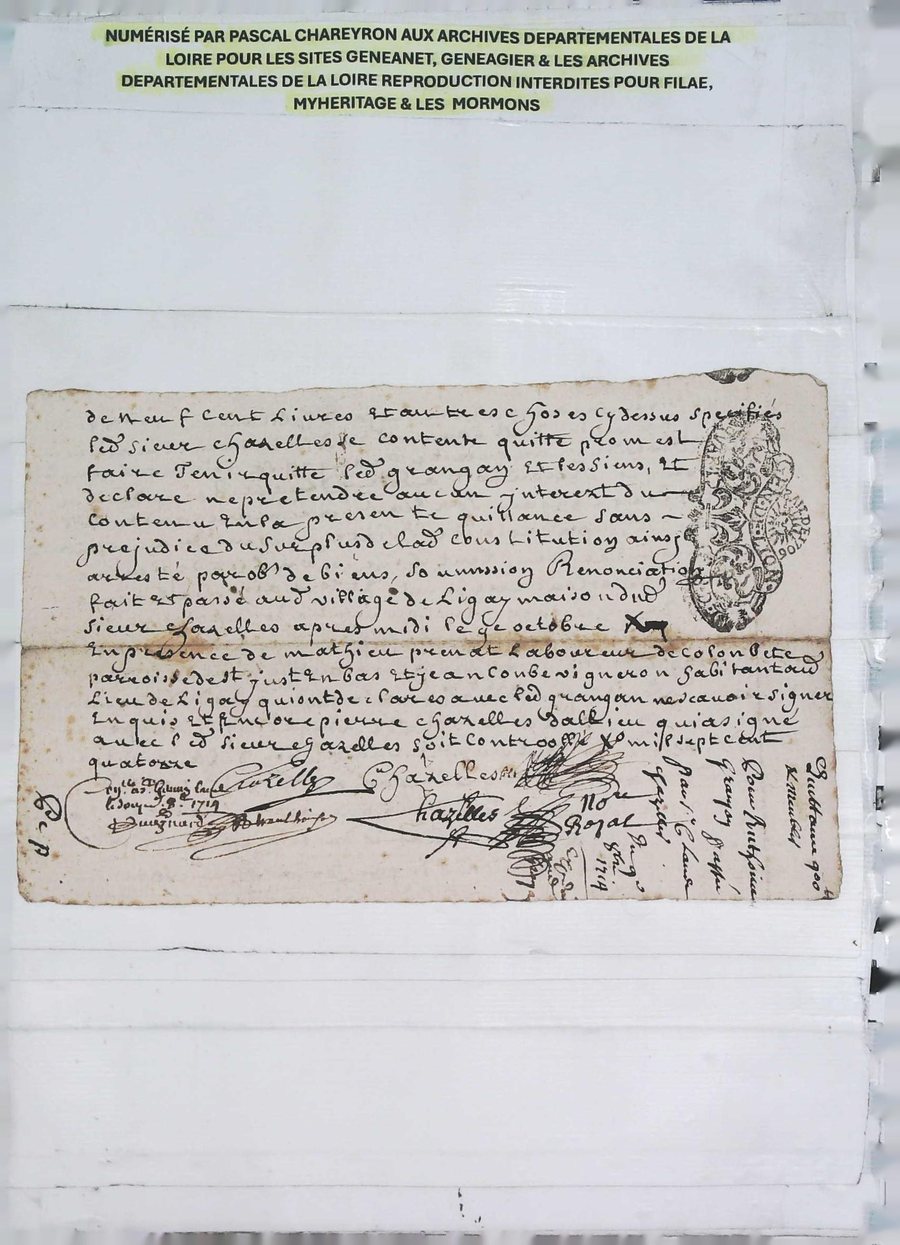 NUMÉRISÉ PAR PASCAL CHAREYRON AUX ARCHIVES DEPARTEMENTALES DE LA
LOIRE POUR LES SITES GENEANET, GENEAGIER & LES ARCHIVES
DEPARTEMENTALES DE LA LOIRE REPRODUCTION INTERDITES POUR FILAE,
MYHERITAGE & LES MORMONS
de neuf cent Livres Et autres choses cy dessus specifiés
led sieur chazelles se contente quitte promest
faire Tenir quitte led grangan Et les siens, Et
declare ne pretendre aucun jnterezt du
contenu En la presente quittance sans
prejudice du surplus de lad constitution ainsj
arresté par obn de biens, soumission Renonciation
fait Et passé aud village de Ligay maison dud
sieur chazelles apres midi le 9e octobre
En presence de mathieu prenat Laboureur de Colonbete
parroisse de st just En bas Et jean Conbe vigneron habitant aud
Lieu de Ligay qui ont declares avec led grangan ne scavoir signer
Enquis Et Encore pierre chazelles dallieu qui a signé
avec led sieur chazelles soit controollé mil sept cent
quatorze
Chazelles
chazelles
Nore
Royal
1714
Quittance 900
X meubles
Pour Anthoine
Grangan passé
par sr Claude